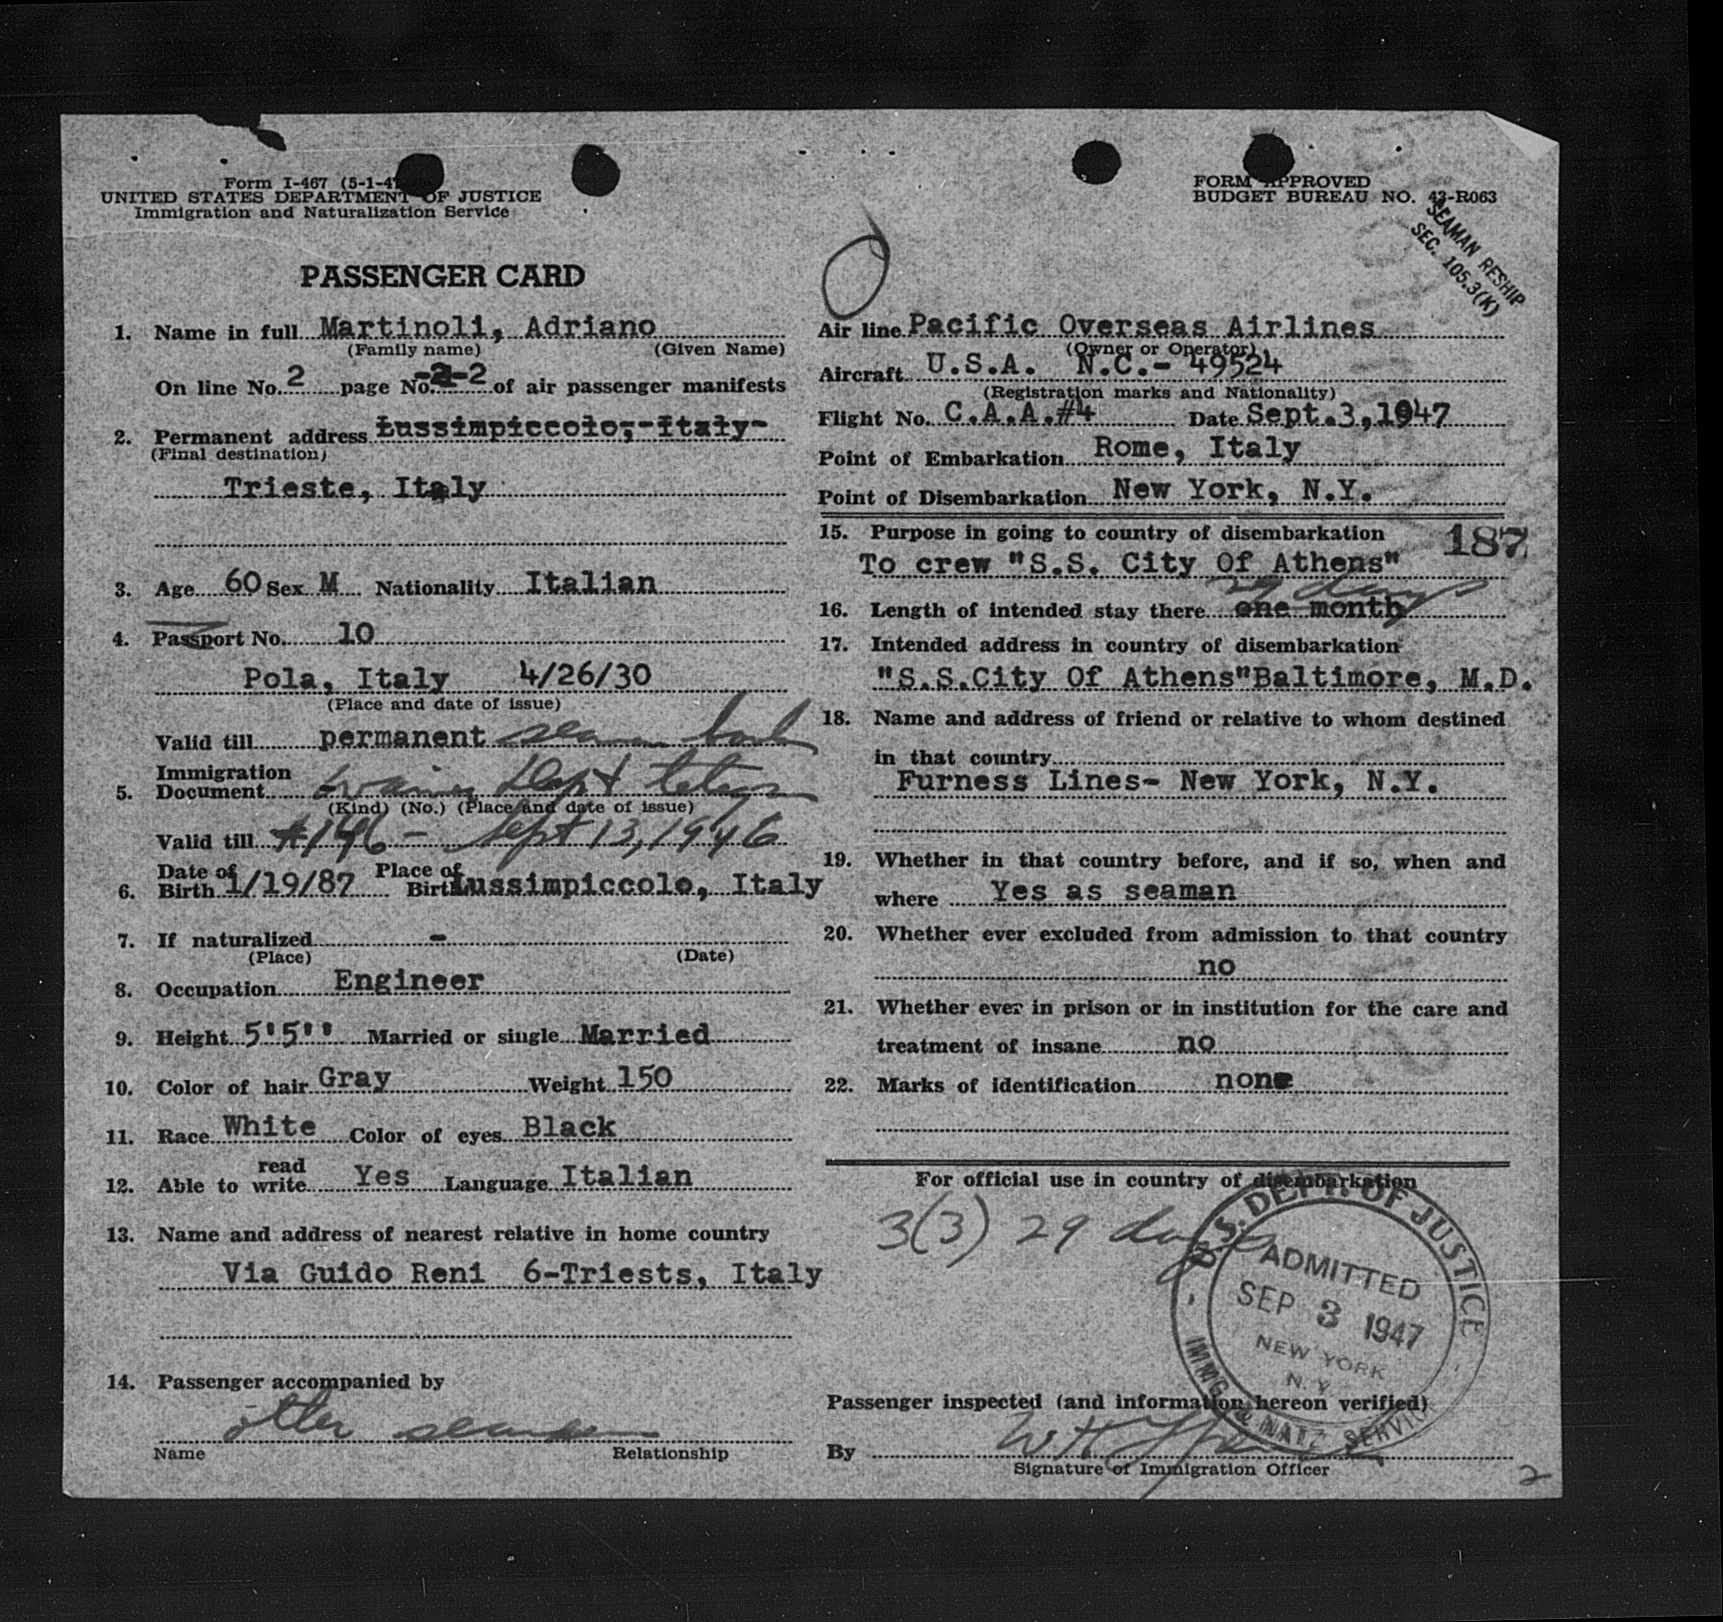 Form I-467 (5-1-4
UNITED STATES DEPARTMENT OF JUSTICE
Immigration and Naturalization Service
FORM APPROVED
BUDGET BUREAU NO. 43-R063
SEAMAN RESHIP
SEC. 105.3(K)
PASSENGER CARD
1. Name in full Martinoli, Adriano
(Family name) (Given Name)
On line No. 2 page No. 2 of air passenger manifests
2. Permanent address Lussimpiccolo, Italy
(Final destination)
Trieste, Italy
3. Age 60 Sex M Nationality Italian
4. Passport No. 10
Pola, Italy 4/26/30
(Place and date of issue)
Valid till permanent seaman book
5. Immigration
Document Dept
(Kind) (No.) (Place and date of issue)
Valid till #146 - Sept 13, 1946
6. Date of Birth 1/19/87 Place of Birth Lussimpiccolo, Italy
7. If naturalized -
(Place) (Date)
8. Occupation Engineer
9. Height 5'5'' Married or single Married
10. Color of hair Gray Weight 150
11. Race White Color of eyes Black
12. Able to read write Yes Language Italian
13. Name and address of nearest relative in home country
Via Guido Reni 6-Triests, Italy
14. Passenger accompanied by
other seamen
Name Relationship
Air line Pacific Overseas Airlines
(Owner or Operator)
Aircraft U.S.A. N.C.- 49524
(Registration marks and Nationality)
Flight No. C.A.A.#4 Date Sept.3,1947
Point of Embarkation Rome, Italy
Point of Disembarkation New York, N.Y.
15. Purpose in going to country of disembarkation 187
To crew "S.S. City Of Athens"
29 days
16. Length of intended stay there one month
17. Intended address in country of disembarkation
"S.S.City Of Athens"Baltimore, M.D.
18. Name and address of friend or relative to whom destined
in that country
Furness Lines- New York, N.Y.
19. Whether in that country before, and if so, when and
where Yes as seaman
20. Whether ever excluded from admission to that country
no
21. Whether ever in prison or in institution for the care and
treatment of insane no
22. Marks of identification none
For official use in country of disembarkation
3(3) 29 days
U.S. DEPT. OF JUSTICE
ADMITTED
SEP 3 1947
NEW YORK
N. Y.
IMMIG. & NATZ. SERVICE
Passenger inspected (and information hereon verified)
By
Signature of Immigration Officer
2